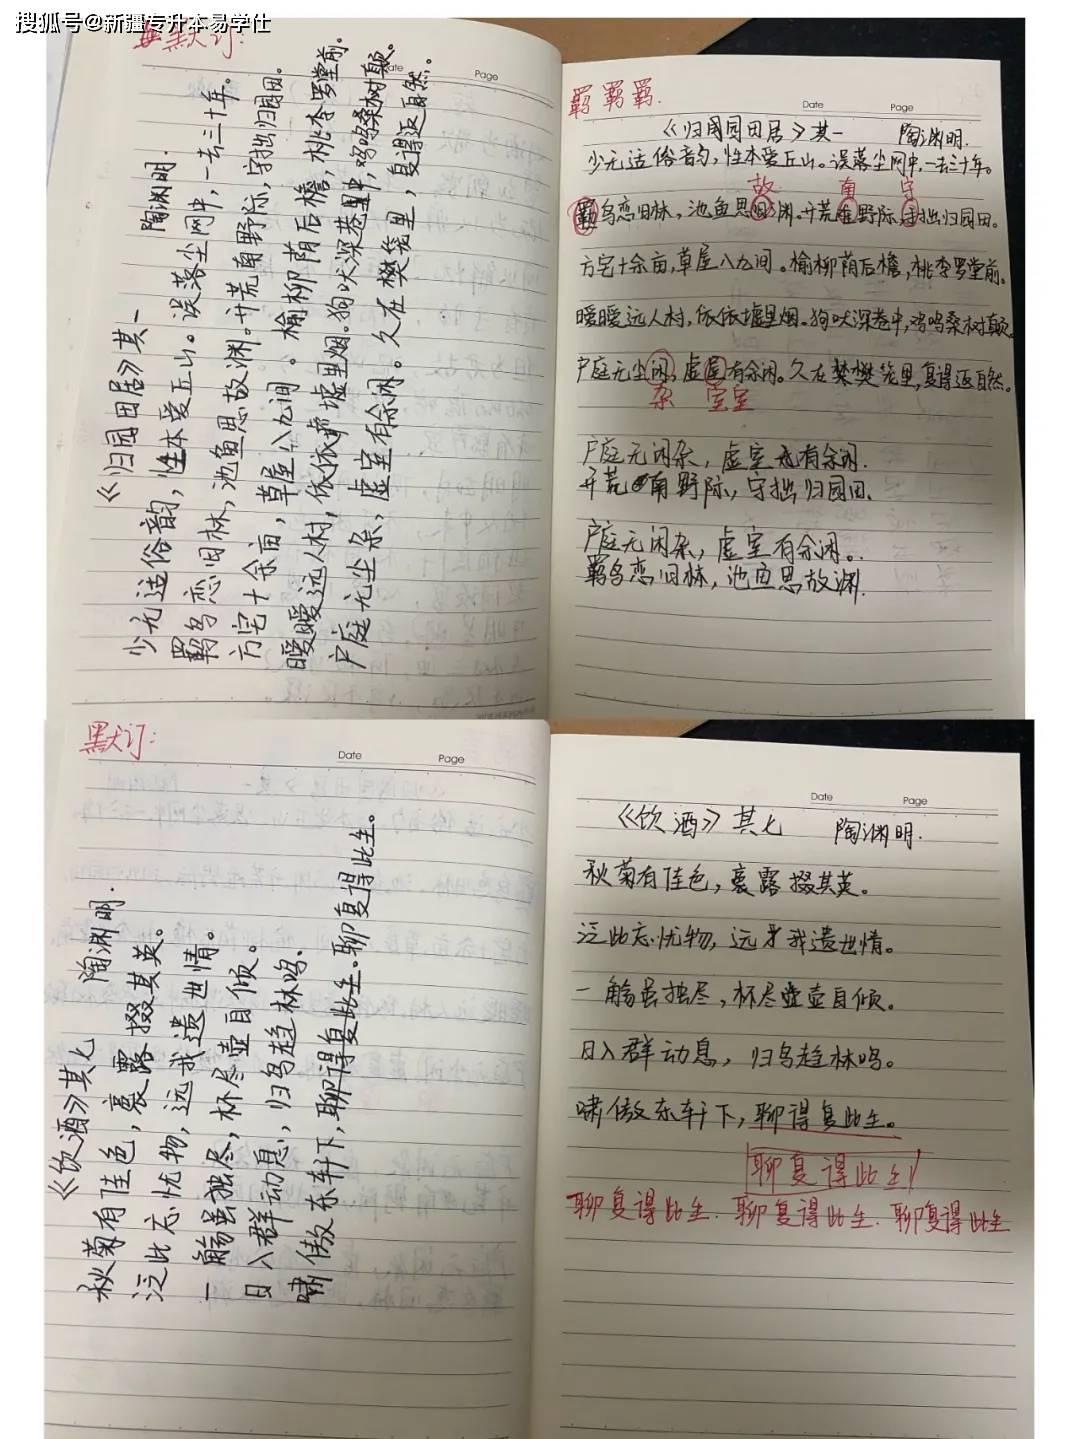 搜狐号@新疆专升本易学仕
默订:
Date
Page
《归园田居》其一 陶渊明.
少无适俗韵，性本爱丘山。误落尘网中，一去三十年。
羁鸟恋旧林，池鱼思故渊。开荒南野际，守拙归园田。
方宅十余亩，草屋八九间。榆柳荫后檐，桃李罗堂前。
暧暧远人村，依依墟里烟。狗吠深巷中，鸡鸣桑树颠。
户庭无尘杂，虚室有余闲。久在樊笼里，复得返自然。
羁 羁 羁.
Date
Page
《归园田居》其一 陶渊明.
少无适俗韵，性本爱丘山。误落尘网中，一去三十年。
故 南 守
羁鸟恋旧林，池鱼思旧渊。开荒野际，拙归园田。
方宅十余亩，草屋八九间。榆柳荫后檐，桃李罗堂前。
暧暧远人村，依依墟里烟。狗吠深巷中，鸡鸣桑树颠。
户庭无尘闲，虚屋有余闲。久在樊樊笼里，复得返自然。
杂 室室
户庭无闲杂，虚室有余闲.
开荒南野际，守拙归园田.
户庭无闲杂，虚室有余闲。
羁鸟恋旧林，池鱼思故渊.
默订:
Date
Page
《饮酒》其七 陶渊明.
秋菊有佳色，裛露掇其英。
泛此忘忧物，远我遗世情。
一觞虽独尽，杯尽壶自倾。
日入群动息，归鸟趋林鸣.
啸傲东轩下，聊得复此生。聊复得此生。
Date
Page
《饮酒》其七 陶渊明.
秋菊有佳色，裛露掇其英。
泛此忘忧物，远我遗世情。
一觞虽独尽，杯尽壶壶自倾。
日入群动息，归鸟趋林鸣。
啸傲东轩下，聊得复此生。
聊复得此生
聊复得此生. 聊复得此生. 聊复得此生